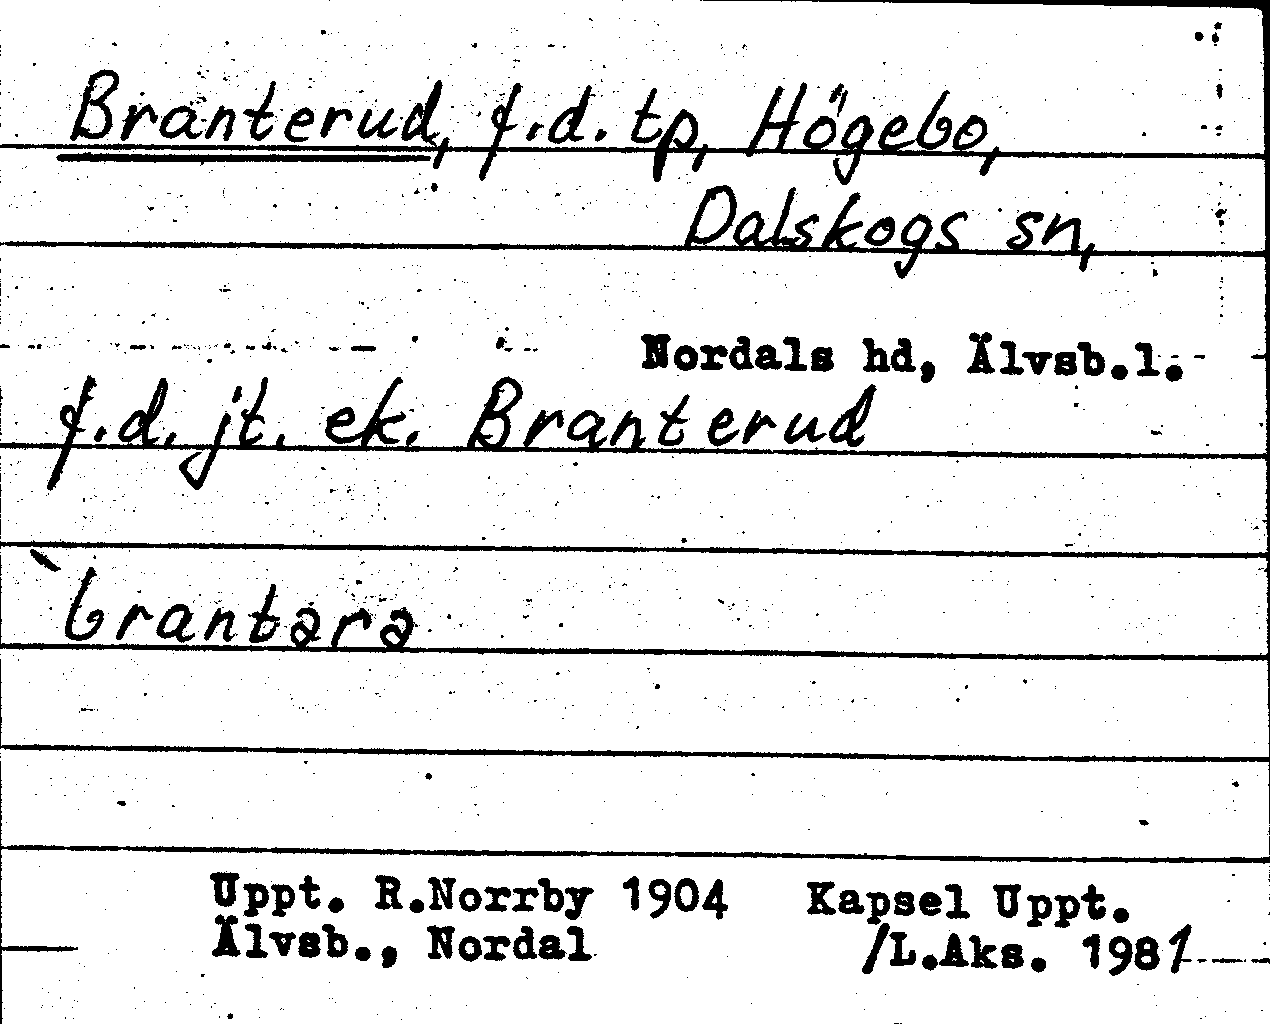 Branterud, f.d. tp, Högebo,
Dalskogs sn,
Nordals hd, Älvsb.l.
f.d. jt. ek. Branterud
`brantərə
Uppt. R.Norrby 1904 Kapsel Uppt.
Älvsb., Nordal /L.Aks. 1981